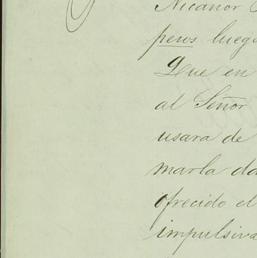 Nicanor
pero luego
Que en
al Señor
usara de
marla da
ofrecido el
impulsiva